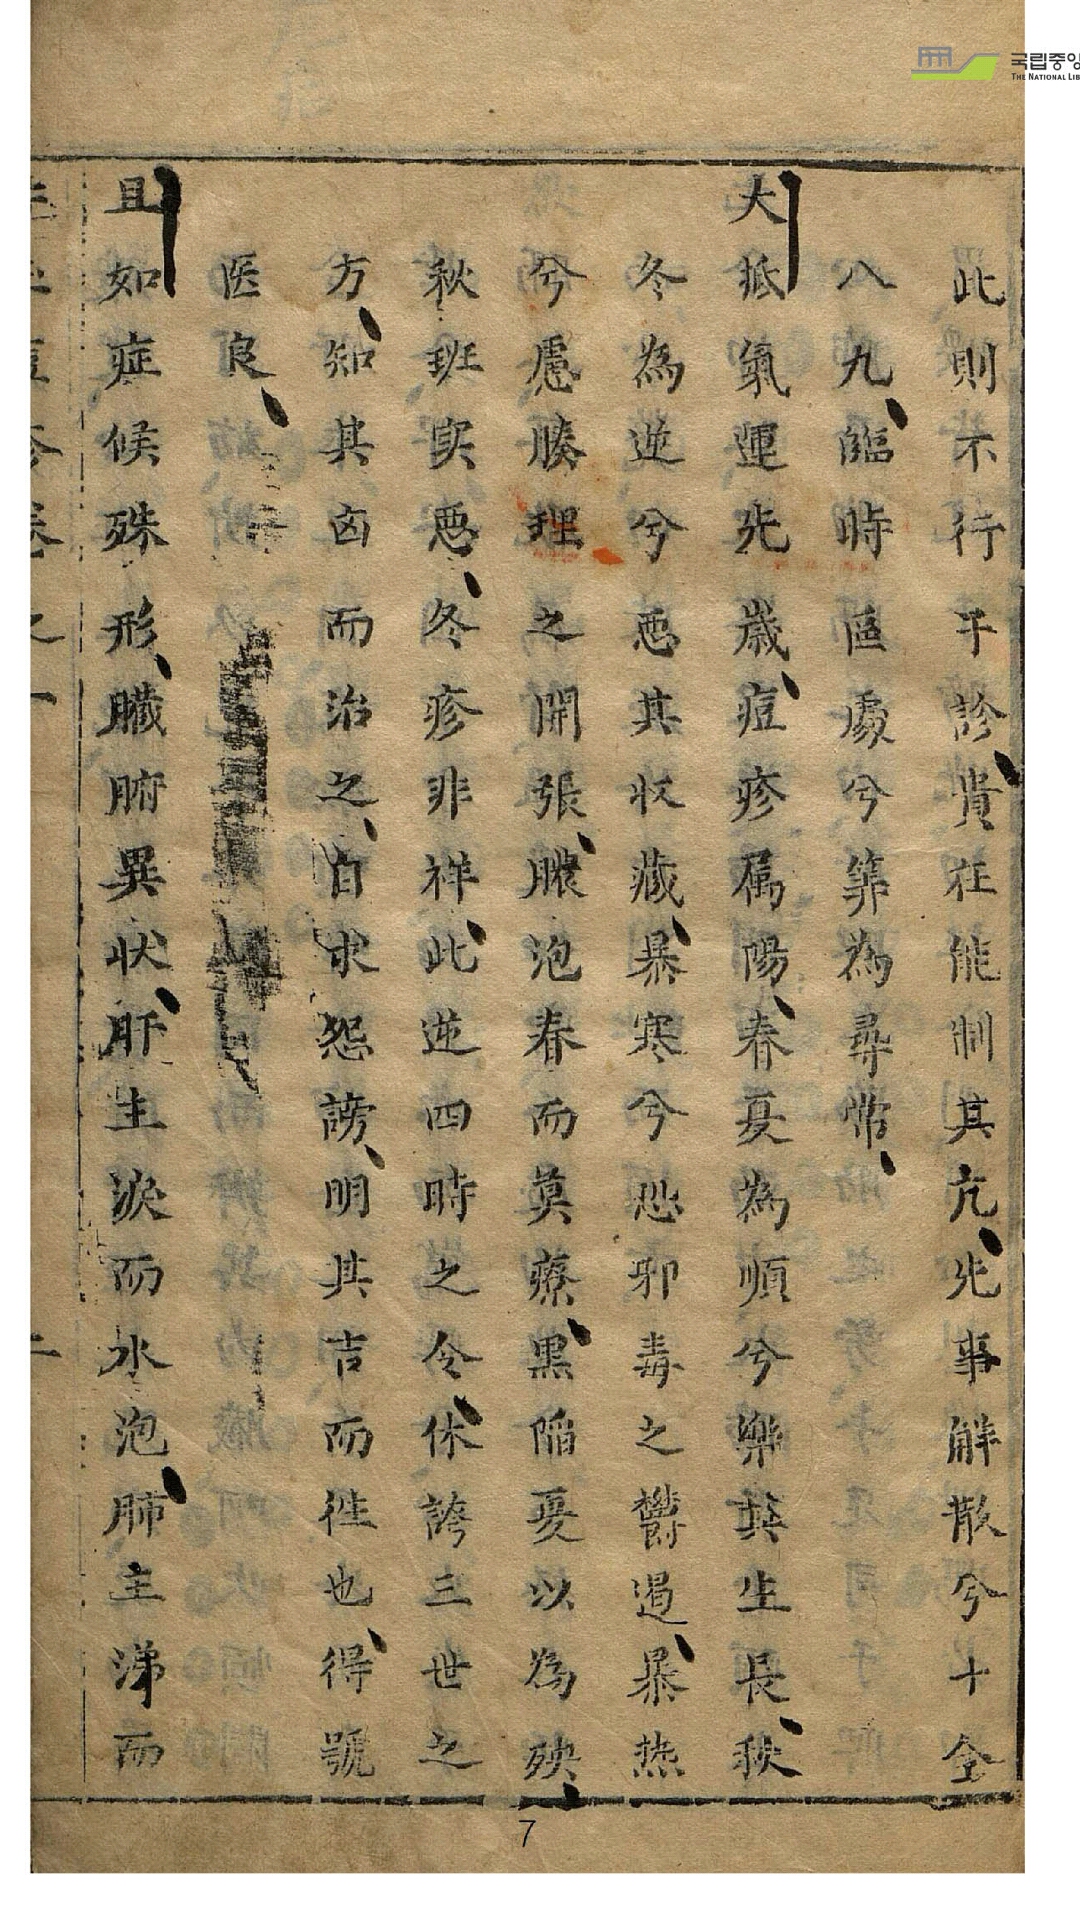 국립중앙
THE NATIONAL LIB
此則不行乎診貴在能制其亢先事解散兮十全
八九臨時區處兮第為尋常
大抵氣運先歲痘疹属陽春夏為順兮樂其生長秋
冬為逆兮惡其收藏暴寒兮恐邪毒之鬱遏暴热
兮慮腠理之開張膿泡春而莫療黑陷夏以為殃
秋班实惡冬疹非祥此逆四時之令休誇三世之
方知其凶而治之自求怨謗明其吉而徃也得號
医良
且如症候殊形臟腑異状肝主淚而水泡肺主涕而
痘疹卷之一
7